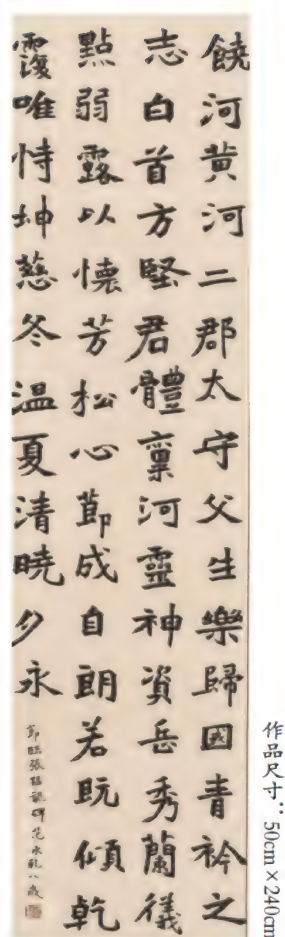 饒河黄河二郡太守父生樂歸國青衿之
志白首方堅君體稟河靈神資岳秀蘭儀
點弱露以懷芳松心莭成自朗若既傾乾
霞唯恃坤慈冬温夏清曉夕永
節臨張猛龍碑
作品尺寸：50cm×240cm